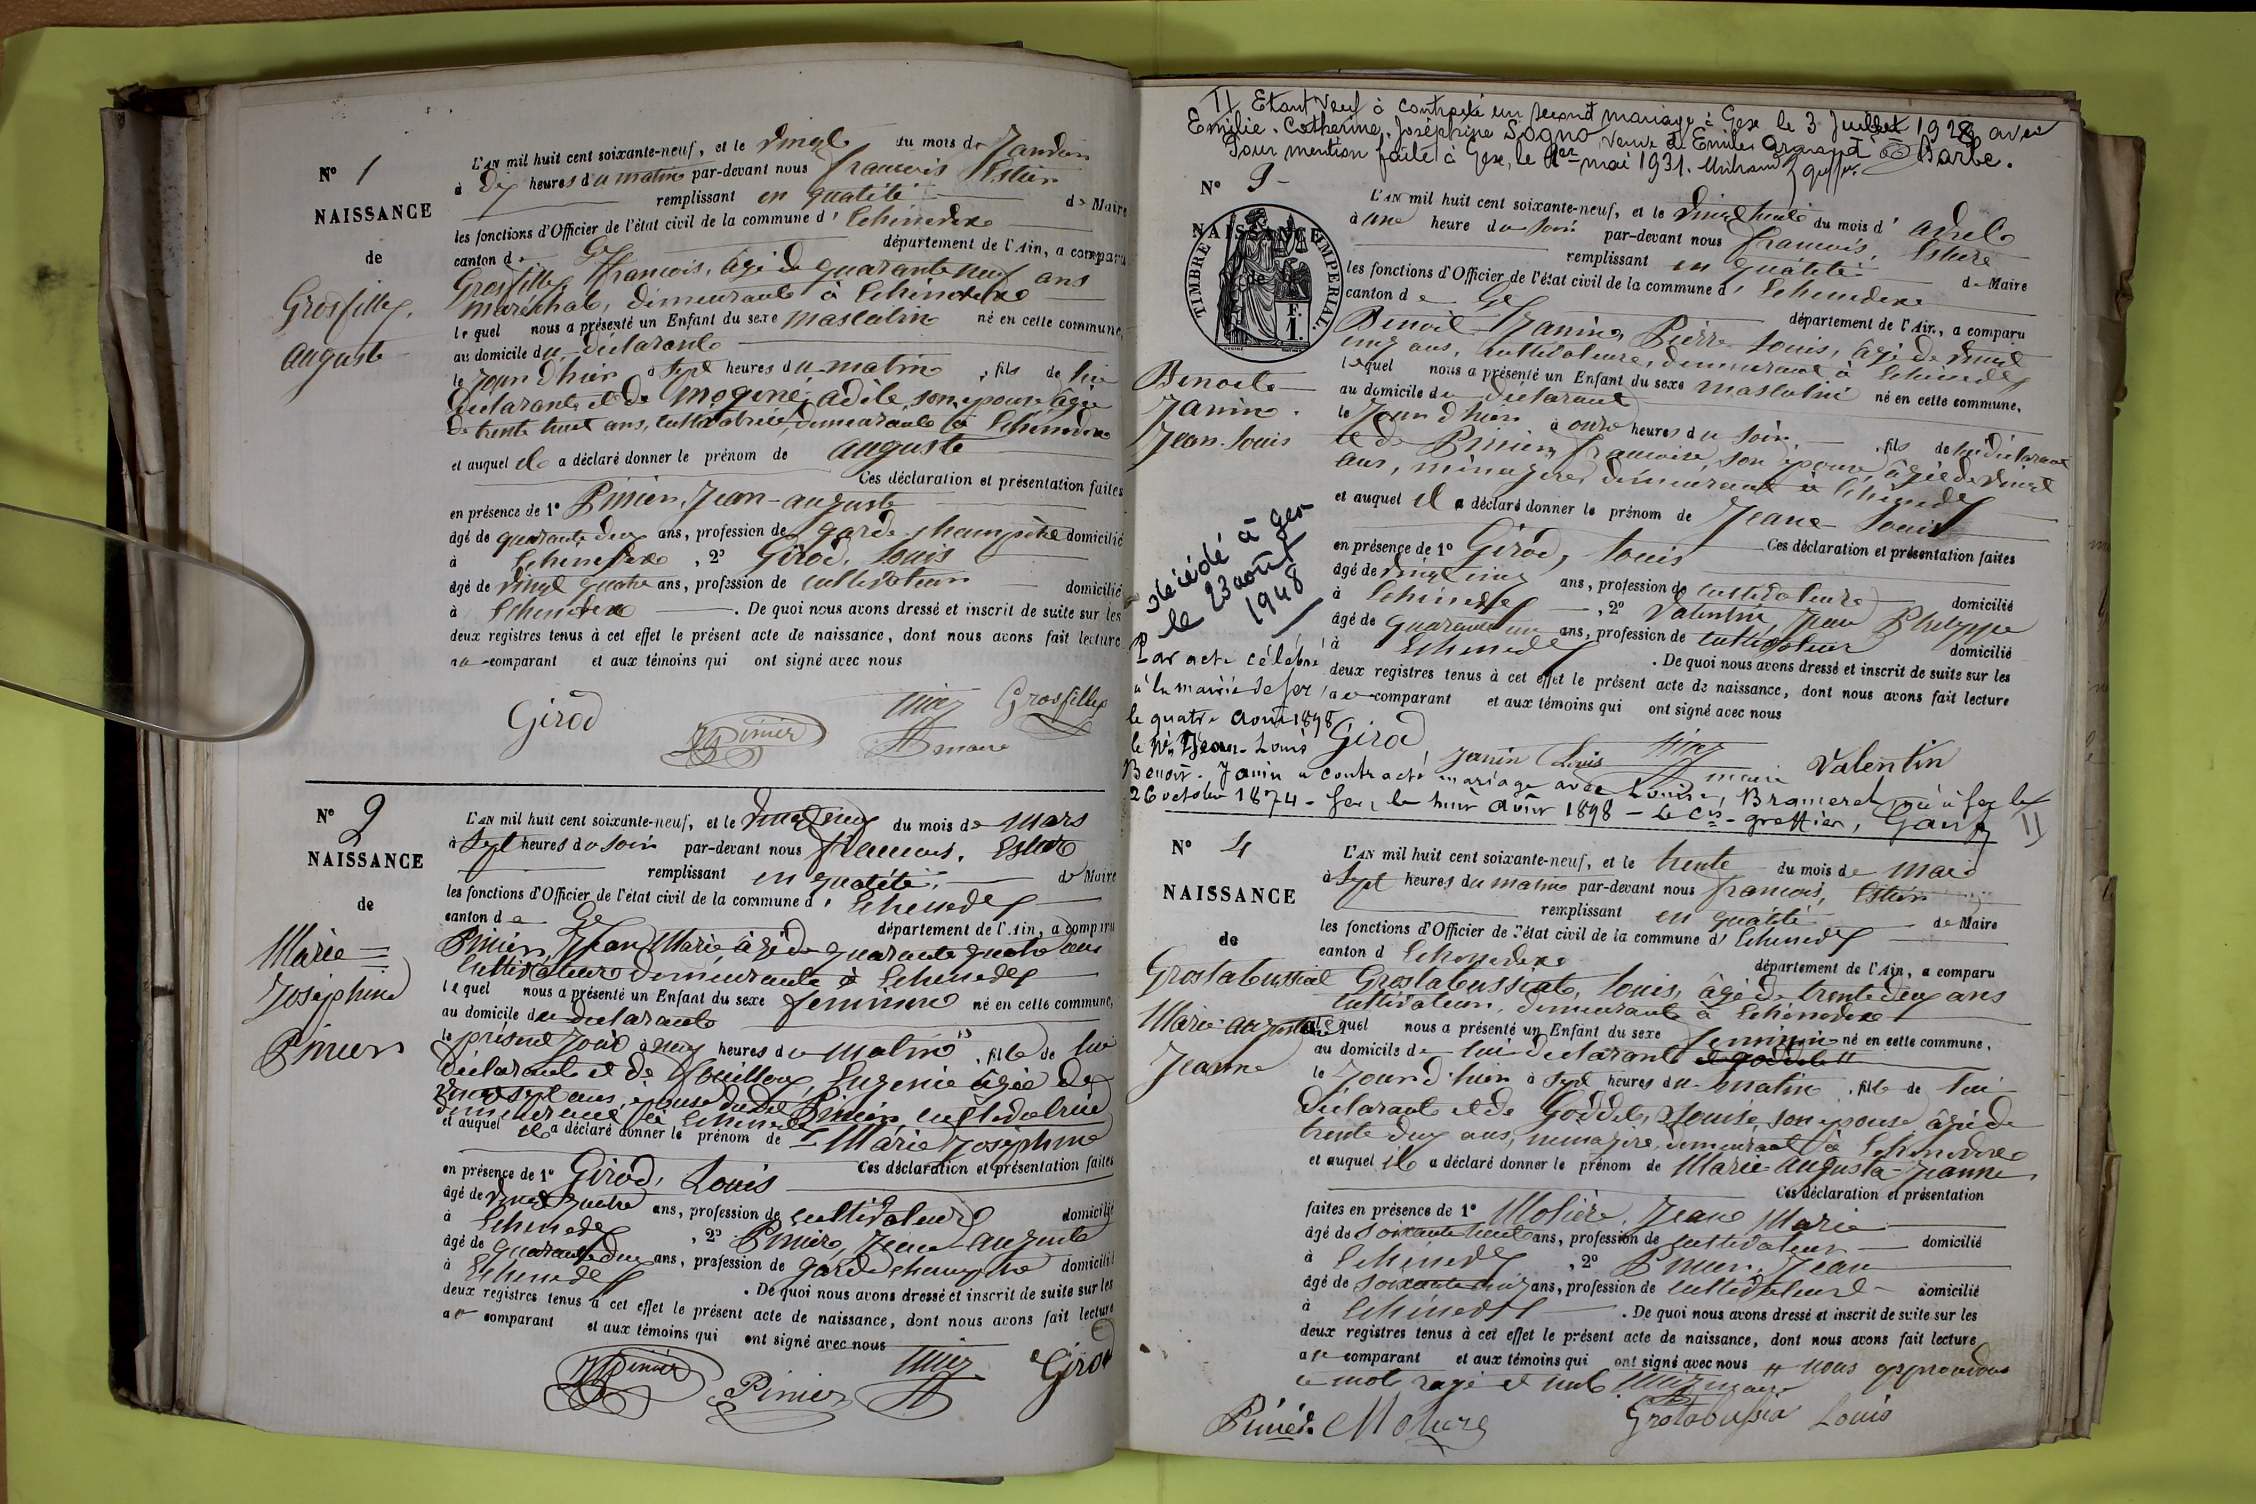 N° 1
NAISSANCE
de
Grosfilley
auguste
L'AN mil huit cent soixante-neuf, et le vingt du mois de Janvier
à dix heures du matin par-devant nous françois Estier
remplissant en qualité de Maire
les fonctions d'Officier de l'état civil de la commune d' Echenevex
canton de Gex département de l'Ain, a comparu
Grosfilley françois, âgé de quarante neuf ans
maréchal, demeurant à Echenevex
lequel nous a présenté un Enfant du sexe masculin né en cette commune,
au domicile du déclarant
le jour d'hier à sept heures du matin, fils de lui
déclarant et de adèle, son épouse âgée
de trente huit ans, cultivatrice, demeurant à Echenevex
et auquel il a déclaré donner le prénom de auguste
Ces déclaration et présentation faites
en présence de 1° Pinier, Jean-auguste
âgé de quarante deux ans, profession de garde champêtre domicilié
à Echenevex, 2° Girod, Louis
âgé de vingt quatre ans, profession de cultivateur domicilié
à Echenevex. De quoi nous avons dressé et inscrit de suite sur les
deux registres tenus à cet effet le présent acte de naissance, dont nous avons fait lecture
au comparant et aux témoins qui ont signé avec nous
Girod Pinier maire Grosfilley
N° 2
NAISSANCE
de
Marie
Joséphine
Pinier
L'AN mil huit cent soixante-neuf, et le du mois de mars
à sept heures du soir par-devant nous françois, Estier
remplissant en qualité de Maire
les fonctions d'Officier de l'état civil de la commune d' Echenevex
canton de Gex département de l'Ain, a comparu
Pinier, Jean Marie, âgé de quarante quatre ans
cultivateur demeurant à Echenevex
lequel nous a présenté un Enfant du sexe féminin né en cette commune,
au domicile du déclarant
le présent jour à neuf heures du matin, fille de lui
déclarant et de Eugénie âgée de
vingt sept ans, épouse dudit Pinier, cultivatrice
demeurant à Echenevex
et auquel il a déclaré donner le prénom de Marie Joséphine
Ces déclaration et présentation faites
en présence de 1° Girod, Louis
âgé de vingt quatre ans, profession de cultivateur domicilié
à Echenevex, 2° Pinier, Jean auguste
âgé de quarante deux ans, profession de garde champêtre domicilié
à Echenevex. De quoi nous avons dressé et inscrit de suite sur les
deux registres tenus à cet effet le présent acte de naissance, dont nous avons fait lecture
au comparant et aux témoins qui ont signé avec nous
Pinier Pinier Girod
II Etant veuf à contracté un second mariage à Gex le 3 Juillet 1928 avec
Emilie, Catherine, Joséphine Sogno, veuve de Emile Barbe.
Pour mention faite à Gex, le 1er mai 1931.
N° 3
NAISSANCE
de
TIMBRE IMPERIAL.
1 F.
Benoit
Janin
Jean-Louis
L'AN mil huit cent soixante-neuf, et le vingt huit du mois d' avril
à une heure du soir par-devant nous françois, Estier
remplissant en qualité de Maire
les fonctions d'Officier de l'état civil de la commune d' Echenevex
canton de Gex département de l'Ain, a comparu
Benoit Janin, Pierre Louis, âgé de vingt
cinq ans, cultivateur, demeurant à Echenevex
lequel nous a présenté un Enfant du sexe masculin né en cette commune,
au domicile du déclarant
le jour d'hier à onze heures du soir, fils de lui déclarant
et de Pinier, françoise, son épouse, âgée de vingt
ans, ménagère, demeurant à Echenevex
et auquel il a déclaré donner le prénom de Jean-Louis
Ces déclaration et présentation faites
en présence de 1° Girod, Louis
âgé de vingt cinq ans, profession de cultivateur domicilié
à Echenevex, 2° Valentin, Jean Philippe
âgé de quarante un ans, profession de cultivateur domicilié
à Echenevex. De quoi nous avons dressé et inscrit de suite sur les
deux registres tenus à cet effet le présent acte de naissance, dont nous avons fait lecture
au comparant et aux témoins qui ont signé avec nous
Girod Janin Louis maire Valentin
décédé à Gex
le 23 août
1948
Par acte célébré
à la mairie de Gex,
le quatre Août 1898
le né Jean-Louis
Benoit-Janin a contracté mariage avec Louise, née à Gex le
26 octobre 1874 - Gex, le huit Août 1898 - Le Cis-greffier, II
N° 4
NAISSANCE
de
Grostabussiat
Marie-augusta
Jeanne
L'AN mil huit cent soixante-neuf, et le trente du mois de mai
à sept heures du matin par-devant nous françois, Estier
remplissant en qualité de Maire
les fonctions d'Officier de l'état civil de la commune d' Echenevex
canton d Echenevex département de l'Ain, a comparu
Grostabussiat, Louis, âgé de trente deux ans
cultivateur, demeurant à Echenevex
lequel nous a présenté un Enfant du sexe féminin né en cette commune,
au domicile de lui déclarant
le jour d'hier à sept heures du matin, fille de lui
déclarant et de Goddet, Louise, son épouse âgée de
trente deux ans, ménagère, demeurant à Echenevex
et auquel il a déclaré donner le prénom de Marie-augusta-Jeanne
Ces déclaration et présentation
faites en présence de 1° Molière, Jean Marie
âgé de soixante huit ans, profession de cultivateur domicilié
à Echenevex, 2° Pinier, Jean
âgé de soixante ans, profession de cultivateur domicilié
à Echenevex. De quoi nous avons dressé et inscrit de suite sur les
deux registres tenus à cet effet le présent acte de naissance, dont nous avons fait lecture
au comparant et aux témoins qui ont signé avec nous # nous approuvons
le mot rayé et nul maire
Pinier Moliere Grostabussia Louis